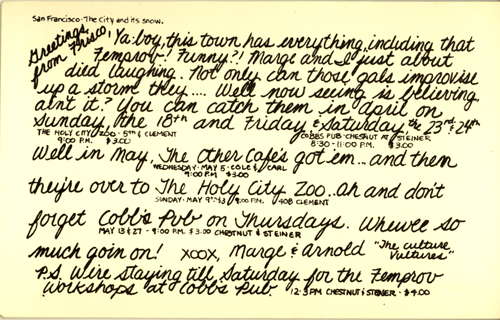 San Francisco - The City and its snow.
Greetings from Frisco,
Ya boy, this town has everything, including that
Femprov! Funny?! Marge and I just about
died laughing. Not only can those gals improvise
up a storm they.... Well now seeing is believing,
ain't it? You can catch them in april on
Sunday, the 18th and Friday & Saturday, the 23rd & 24th
THE HOLY CITY ZOO - 5TH & CLEMENT COBBS PUB - CHESTNUT AT STEINER
9:00 P.M. $3.00 8:30 - 11:00 P.M. $3.00
Well in May, The Other Cafe's got em... and then
WEDNESDAY - MAY 5 - COLE & CARL
9:00 P.M. $3.00
they're over to The Holy City Zoo.. Oh and don't
SUNDAY - MAY 9 - $3 9:00 P.M. 408 CLEMENT
forget Cobb's Pub on Thursdays. Whewee so
MAY 13 & 27 - 9:00 P.M. $3.00 CHESTNUT & STEINER
much goin on! XOOX, Marge & Arnold "The culture Vultures"
P.S. We're staying till Saturday for the Femprov
Workshops at Cobb's Pub. 12-3 PM CHESTNUT & STEINER - $4.00